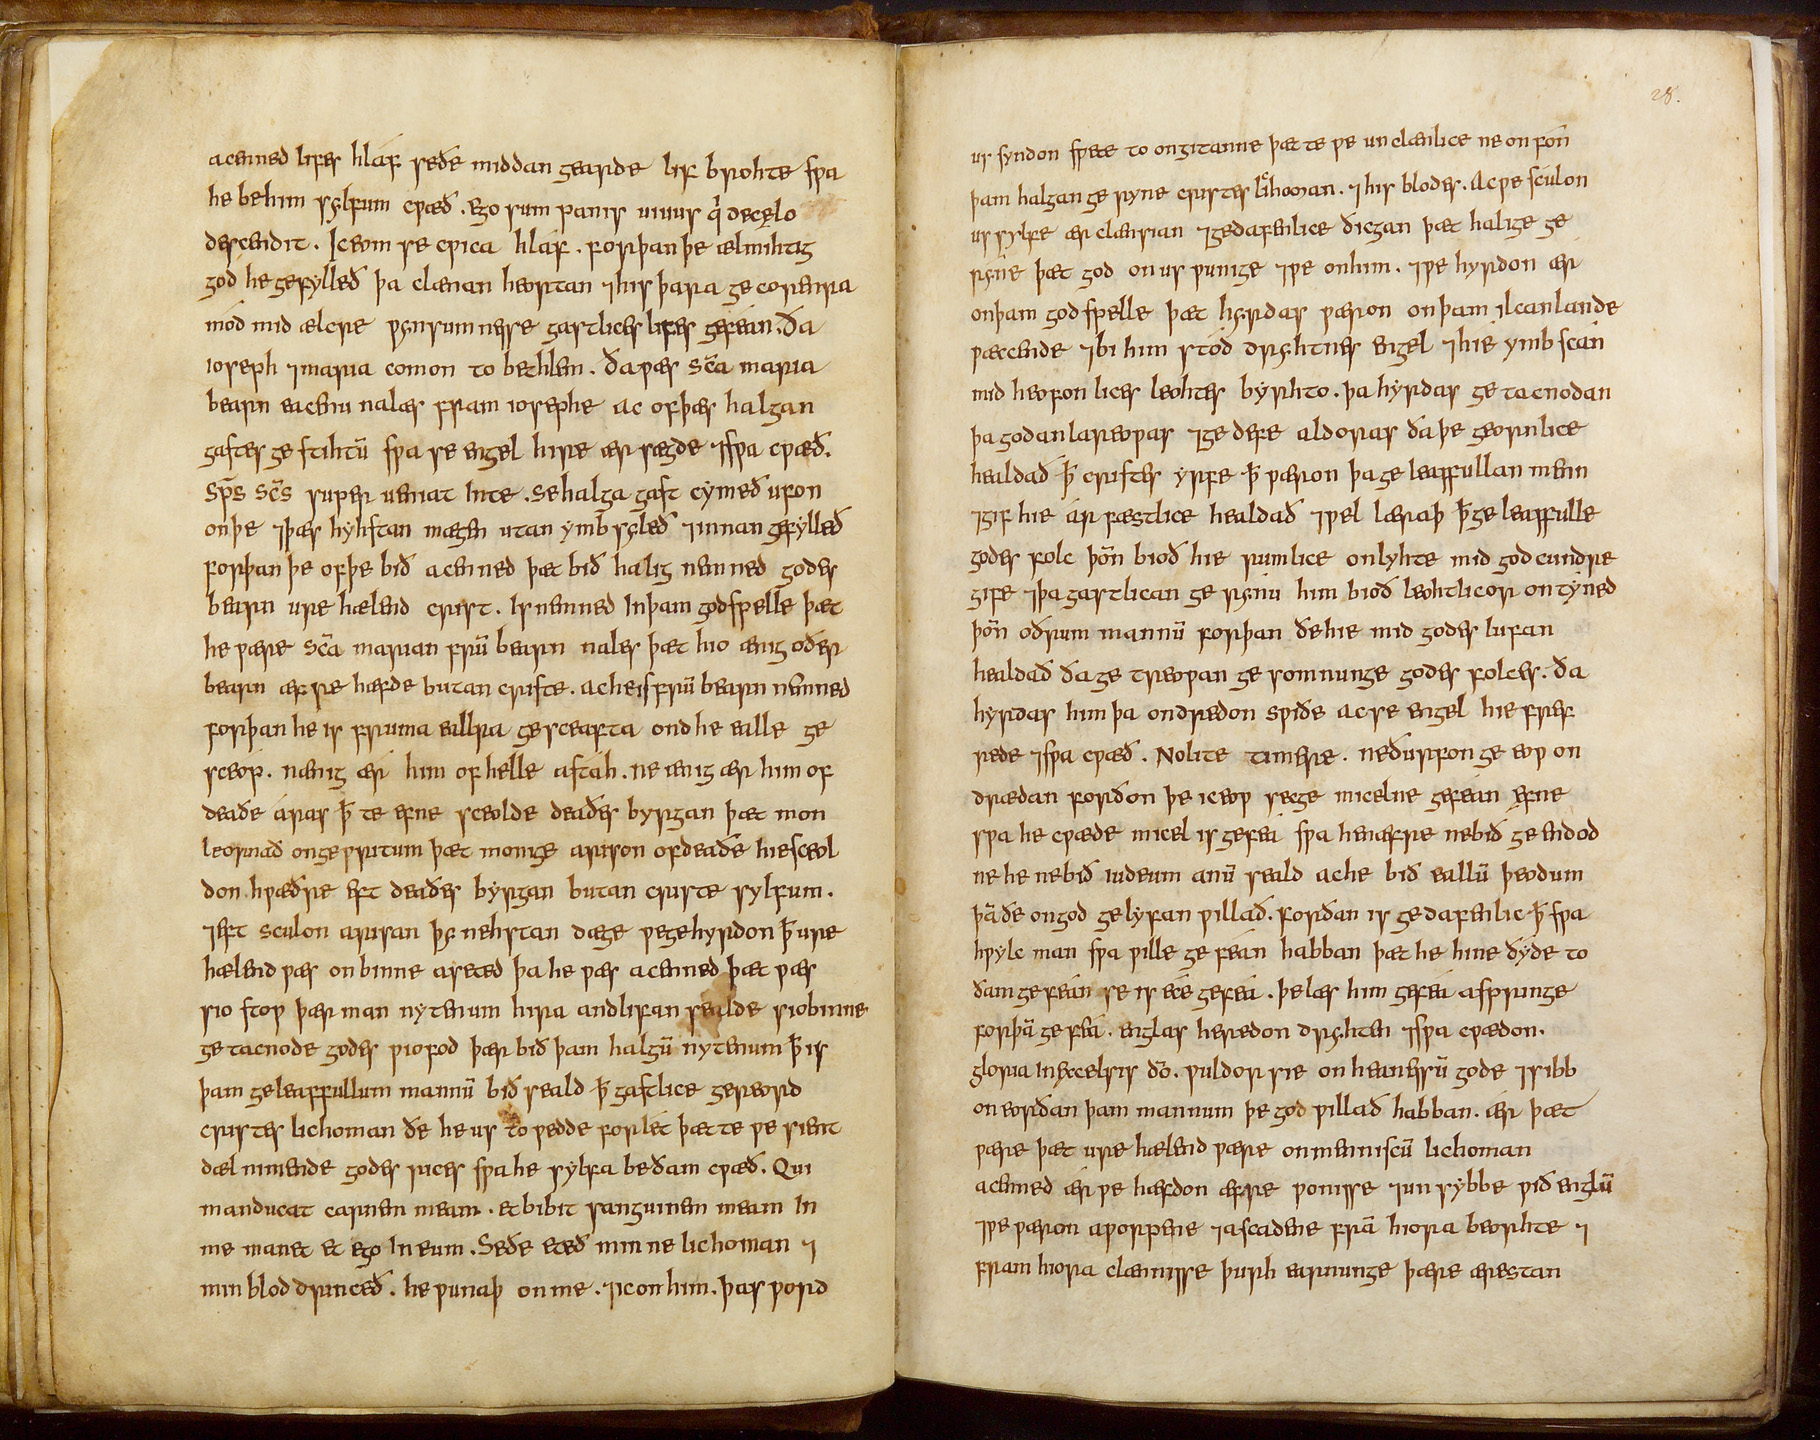 acenned lifes hláf seðe middan gearde lif brohte swa
he behim sylfum cwæð. Ego sum panis uiuus q̇ decęlo
descendit. Ic eom se cwica hláf. forþan þe ælmihtig
god he gefylleð þa clænan heortan ⁊his þara ge corenra
mód mid ælcre wynsumnesse gastlices lifes gefean. Ða
ioseph ⁊maria comon to bethlem. ða wæs sc̄a maria
bearn eacenu nalæs fram iosephe ac of þæs halgan
gastes ge stihtū swa se engel hire ær sægde ⁊swa cwæð.
Sp̄s sc̄s super ueniat Inte. Se halga gast cymeð ufon
on þe ⁊þæs hyhstan mægen utan ymb syleð ⁊innan gefylleð
forþan þe of þe bið acenned þæt bið halig nemned godes
bearn ure hælend crist. Is nemned Inþam godspelle þæt
he wære sc̄a marian frū bearn nales þæt hio ænig oðer
bearn æfre hæfde butan criste. ac he is frū bearn nemned
forþan he is fruma eallra gesceafta ond he ealle ge
sceop. nænig ær him of helle astah. ne ænig ær him of
deaðe áras ꝥ te efne sceolde deaðes byrgan þæt mon
leornað on gewritum þæt monige arison of deaðe hie sceol
don hwæðre eft deaðes byrgan butan criste sylfum.
⁊eft sculon arisan þy nehstan dæge we gehyrdon ꝥ ure
hælend wæs on binne aseted þa he wæs acenned þæt wæs
sio stow þær man nytenum hira andlifan sealde sio binne
ge tacnode godes wiofod þær bið þam halgū nytenum ꝥ is
þam geleaffullum mannū bið seald ꝥ gastlice gereord
cristes lichoman ðe he us to wedde forlet þæt te we sient
dæl nimende godes rices swa he sylfa be ðam cwæð. Qui
manducat carnem meam. et bibit sanguinem meam In
me manet et ego In eum. Seðe eteð min ne lichoman ⁊
min blod drinceð. he wunaþ on me. ⁊ic on him. þas word
28.
us syndon swete to ongitanne þæt te we un clænlice ne on fón
þam halgan ge ryne cristes līhoman. ⁊his blodes. Ac we sculon
us sylfe ær clænsian ⁊gedafenlice ðicgan þæt halige ge
ryne þæt god on us wunige ⁊we on him. ⁊we hyrdon ær
on þam godspelle þæt hyrdas wæron on þam ilcan lande
wæccende ⁊bi him stód dryhtnes engel ⁊hie ymb scán
mid heofon lices leohtes byrhto. þa hyrdas ge tacnodan
þa godan lareowas ⁊ge defe aldoras ða þe geornlice
healdað ꝥ cristes yrfe ꝥ wæron þa ge leaffullan menn
⁊gif hie ár fæstlice healdað ⁊wel læraþ ꝥ ge leaffulle
godes folc þōn bioð hie rumlice onlyhte mid god cundre
gife ⁊þa gastlican ge rynu him bioð leohtlicor on týned
þōn oðrum mannū forþan ðe hie mid godes lufan
healdað ða ge treowan ge somnunge godes folces. ða
hyrdas him þa ondredon swiðe ac se engel hie fref
rede ⁊swa cwæð. Nolite timere. ne ðurfon ge eow on
drædan forðon þe ic eow secge micelne gefean efne
swa he cwæde micel is gefea swa he næfre ne bið ge endod
ne he ne bið iudeum anū seald ac he bið eallū þeodum
þā ðe on god gelyfan willað. forðan is ge dafenlic ꝥ swa
hwylc man swa wille ge feán habban þæt he hine ðyde to
ðam ge feán se is ece gefea. þe læs him gefea aspringe
forþā ge fea. englas heredon dryhten ⁊swa cwædon.
gloria In excelsis dō. wuldor sie on heanesū gode ⁊sibb
on eorðan þam mannum þe god willað habban. ær þæt
wære þæt ure hælend wære on menniscū lichoman
acenned ær we hæfdon æfre wonisse ⁊un sybbe wið englū
⁊we wæron aworpene ⁊ascadene frā hiora beorhte ⁊
fram hiora clænnisse þurh earnunge þære ærestan